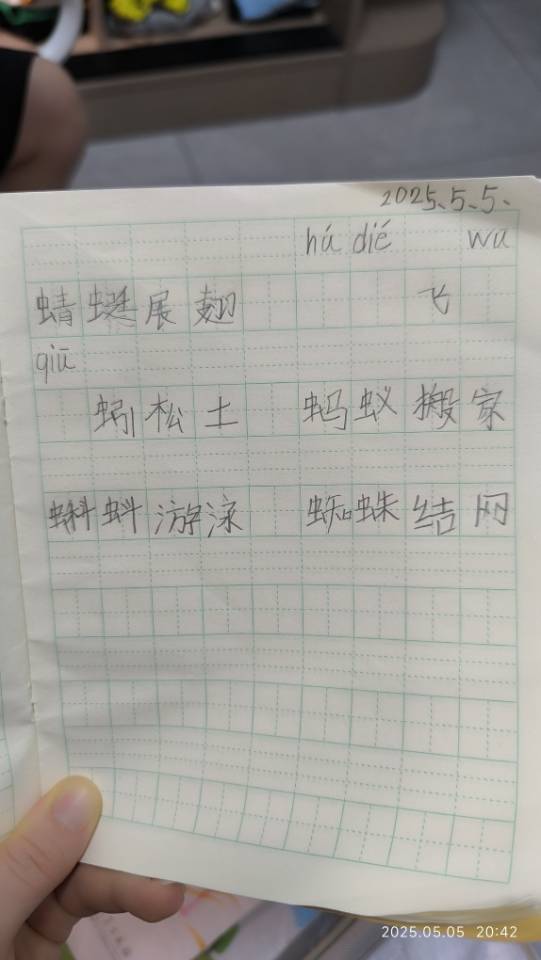 2025.5.5.
hú dié wu
蜻蜓展翅 飞
qiū
蚓松土 蚂蚁搬家
蝌蚪游泳 蜘蛛结网
2025.05.05 20:42